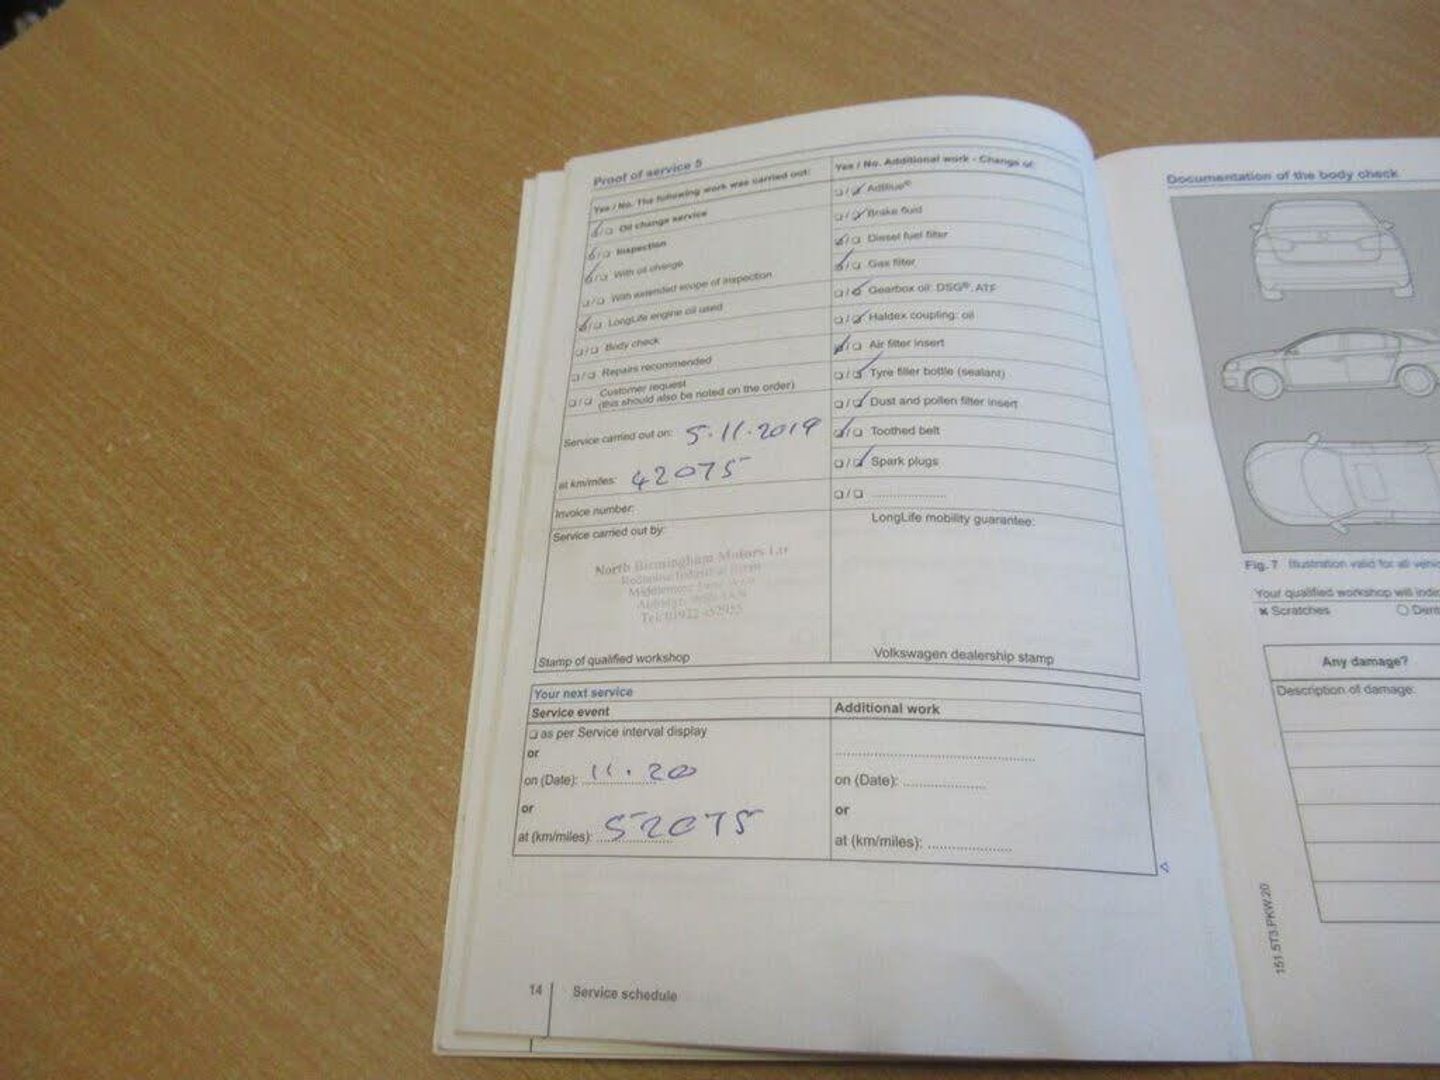 Proof of service 5
Yes / No. The following work was carried out:
Oil change service
Inspection
With oil change
With extended scope of inspection
LongLife engine oil used
Body check
Repairs recommended
Customer request
(this should also be noted on the order)
Service carried out on: 5.11.2019
at km/miles: 42075
Invoice number:
Service carried out by:
North Birmingham Motors
Stamp of qualified workshop
Yes / No. Additional work - Change of:
AdBlue®
Brake fluid
Diesel fuel filter
Gas filter
Gearbox oil: DSG®, ATF
Haldex coupling: oil
Air filter insert
Tyre filler bottle (sealant)
Dust and pollen filter insert
Toothed belt
Spark plugs
LongLife mobility guarantee:
Volkswagen dealership stamp
Your next service
Service event
as per Service interval display
or
on (Date): 11.20
or
at (km/miles): 52075
Additional work
on (Date):
or
at (km/miles):
14 Service schedule
Documentation of the body check
Fig. 7 Illustration valid for all
Your qualified workshop will
Scratches
Any damage?
Description of damage:
151.5T3.PKW.20